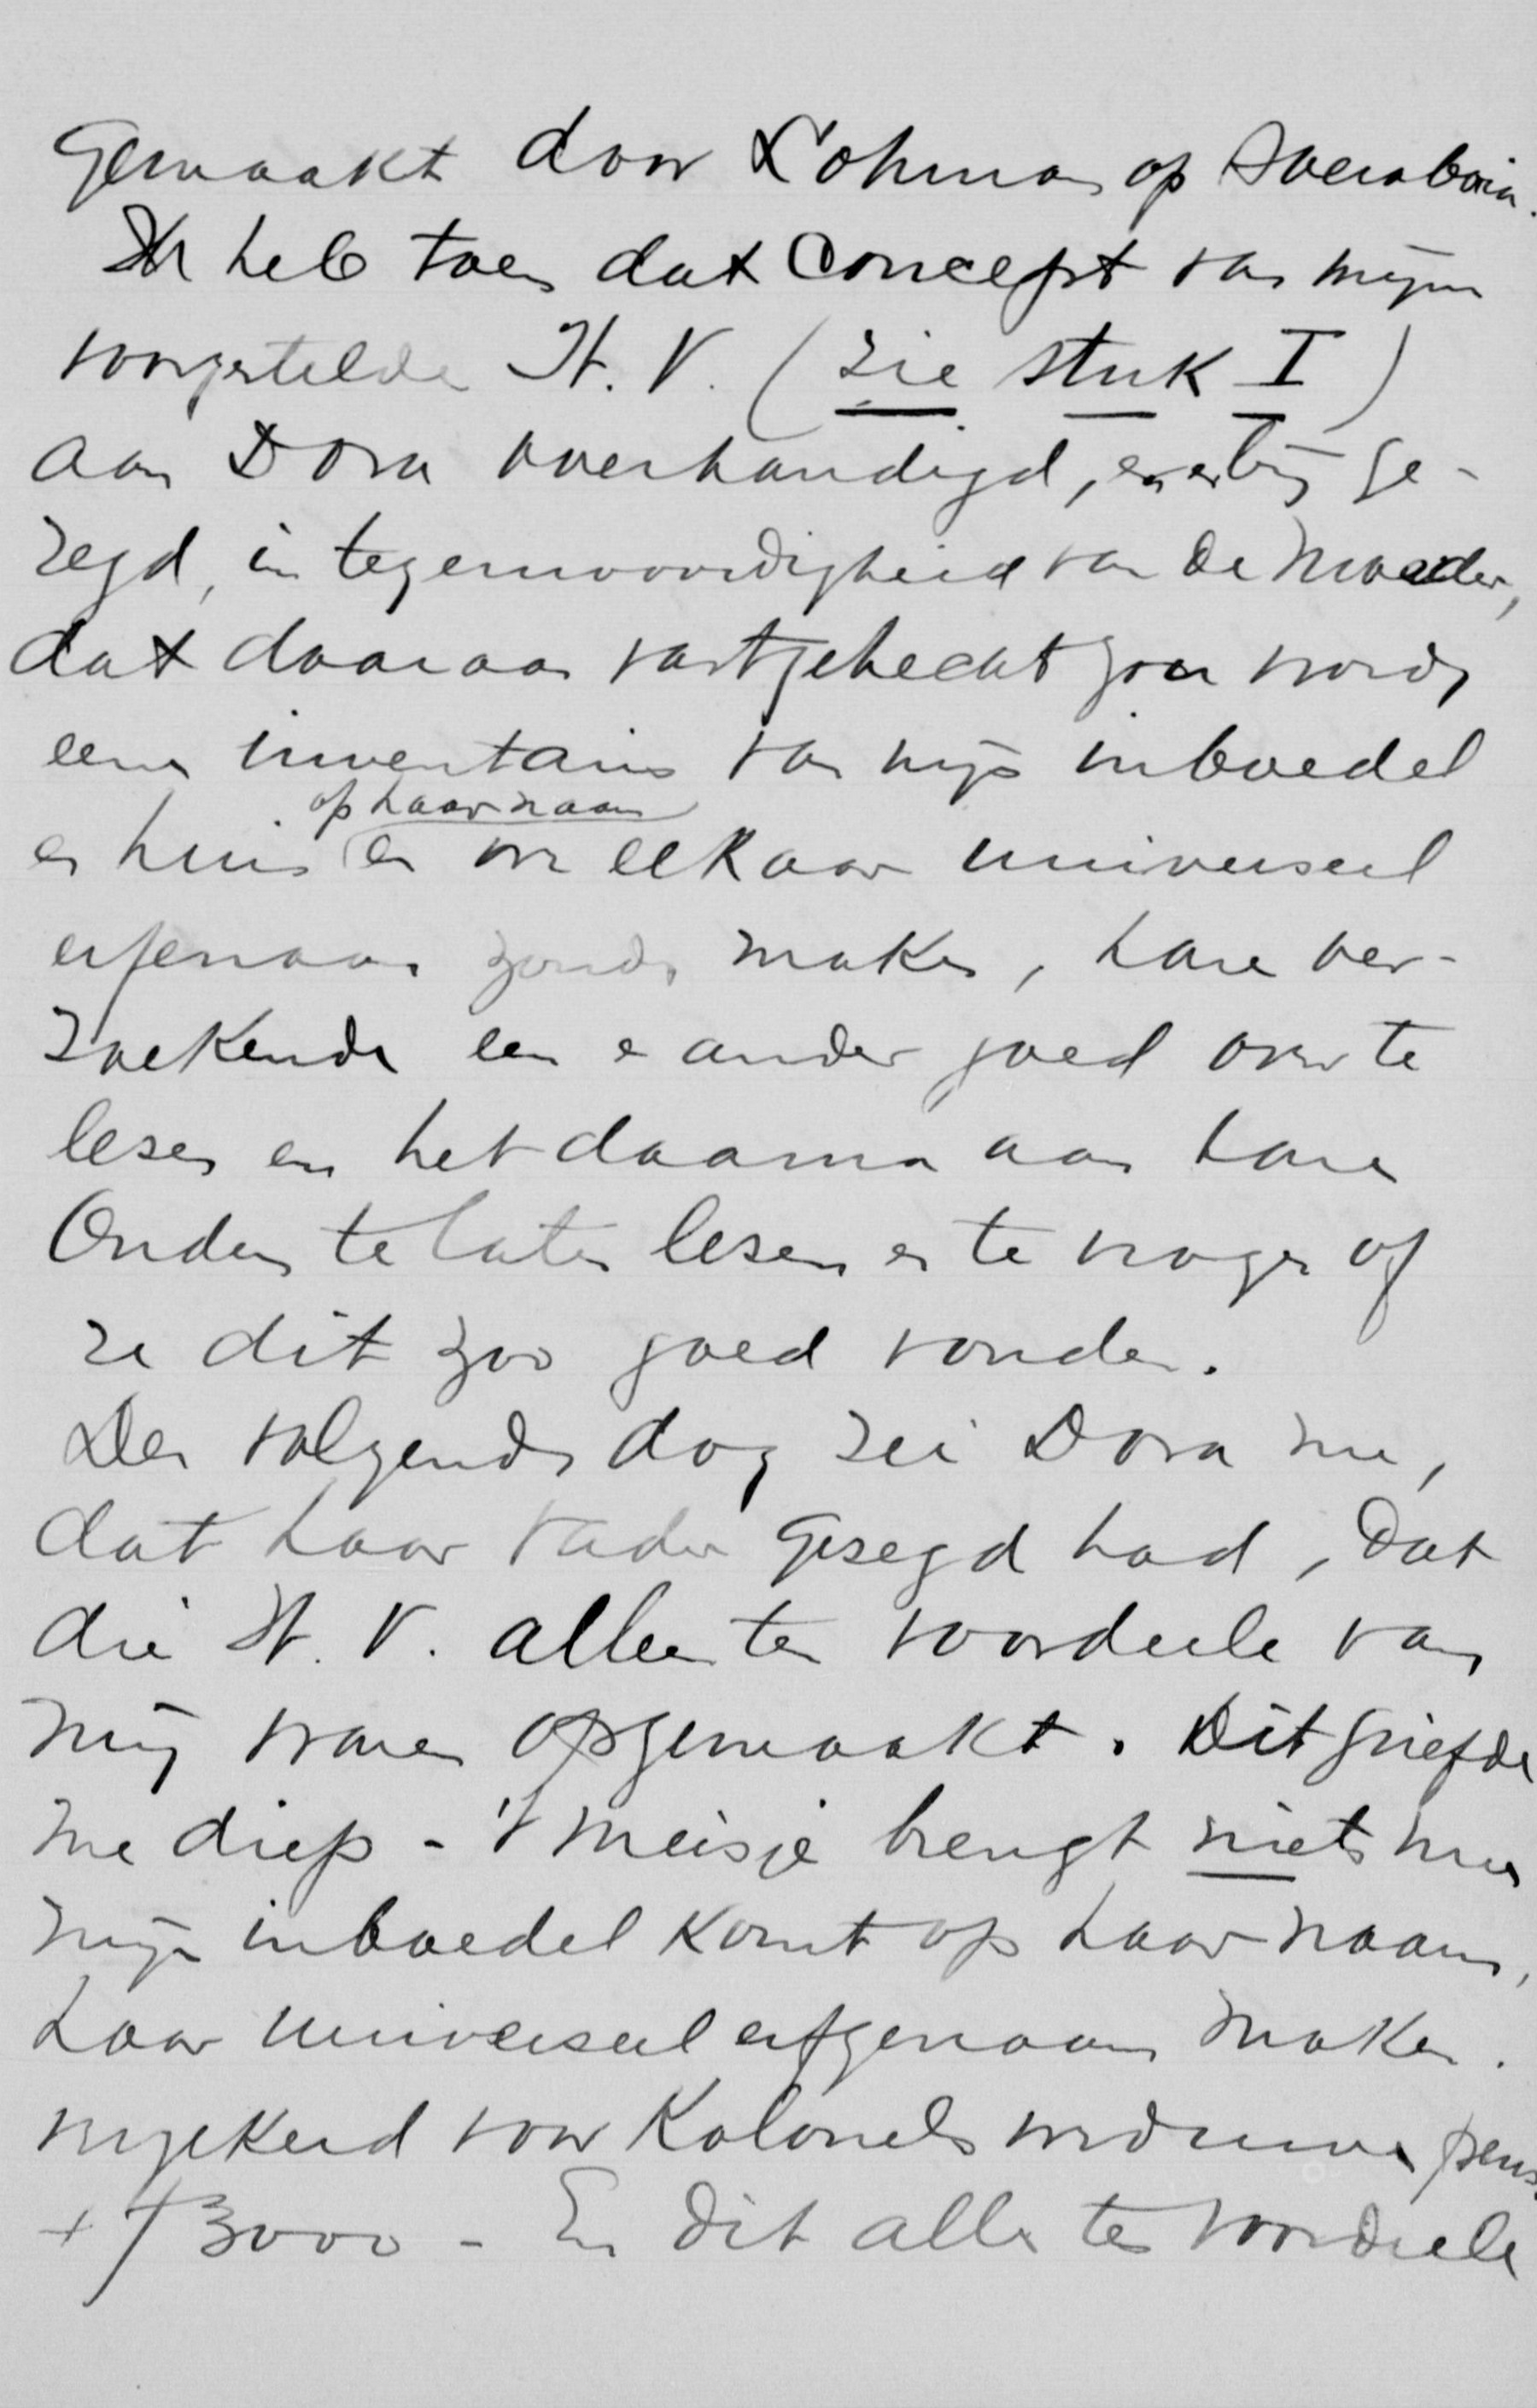 Gemaakt door Lohman op Soerabaia.
Ik heb toen dat Concept van mijn
voorgestelde H. V. (zie stuk I)
aan Dora overhandigd, en erbij ge-
zegd, in tegenwoordigheid van de Moeder,
dat daaraan vastgehecht zou worden
een inventaris van mijn inboedel
op haar naam
en huis en we elkaar universeel
erfgenaam zouden maken, hare ver-
zoekende een en ander goed over te
lezen en het daarna aan hare
Ouders te laten lezen en te vragen of
ze dit zoo goed vonden.
Den volgenden dag zei Dora me,
dat haar vader Gezegd had, dat
die H. V. alleen ten voordeele van
mij waren opgemaakt. Dit griefde
me diep - 't meisje brengt niets mee
mijn inboedel komt op haar naam,
haar universeel erfgenaam maken.
verzekerd voor Kolonels weduwen pens.
+ ƒ 3000 - En dit alles ten voordeele